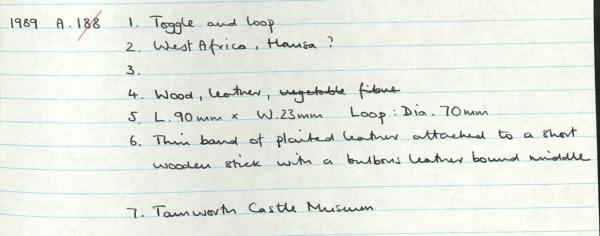 1989 A.188 1. Toggle and loop
2. West Africa, Hausa?
3.
4. Wood, leather, vegetable fibre
5. L.90mm x W.23mm Loop: Dia. 70mm
6. Thin band of plaited leather attached to a short
wooden stick with a bulbous leather bound middle
7. Tamworth Castle Museum